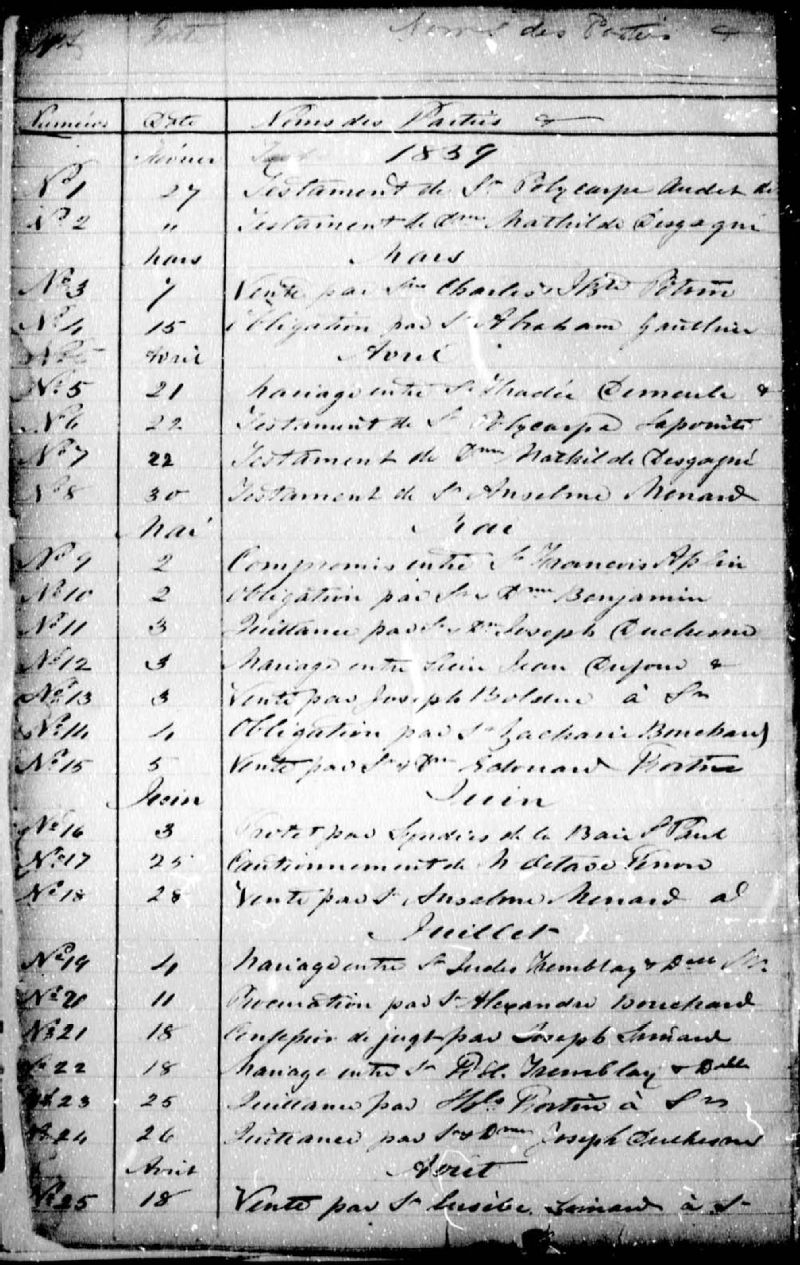 Noms des Parties &
Numéros Date Noms des Parties &
février 1839
No 1 27 Testament de Sr Polycarpe Audet de
No 2 " Testament de Dme Mathilde Desgagné
Mars Mars
No 3 7 Vente par Charles
No 4 15 Obligation par Sr Abraham Gauthier
Avril Avril
No 5 21 Mariage entre Sr Thadée Demeule &
No 6 22 Testament de Sr Polycarpe Lapointe
No 7 22 Testament de Dme Mathilde Desgagné
No 8 30 Testament de Sr Anselme Menard
Mai Mai
No 9 2 Compromis entre Sr François
No 10 2 Obligation par Sr & Dme Benjamin
No 11 3 Quittance par Sr & Dme Joseph Duchesne
No 12 3 Mariage entre Sieur Jean Dufour &
No 13 3 Vente par Joseph Bolduc à Sr
No 14 4 Obligation par Sr Zacharie Bouchard
No 15 5 Vente par Sr & Dme Edouard Fortin
Juin Juin
No 16 3 Protet par Syndics de la Baie St Paul
No 17 25 Cautionnement de Mr Octave
No 18 28 Vente par Sr Anselme Menard al
Juillet
No 19 4 Mariage entre Sr Jules Tremblay & Delle
No 20 11 Procuration par Sr Alexandre Bouchard
No 21 18 Confession de jugt par Joseph Simard
No 22 18 Mariage entre Sr Tremblay & Delle
No 23 25 Quittance par Ths Fortin à Sr
No 24 26 Quittance par Sr & Dme Joseph Duchesne
Aout Aout
No 25 18 Vente par Sr Eusèbe Simard à Sr